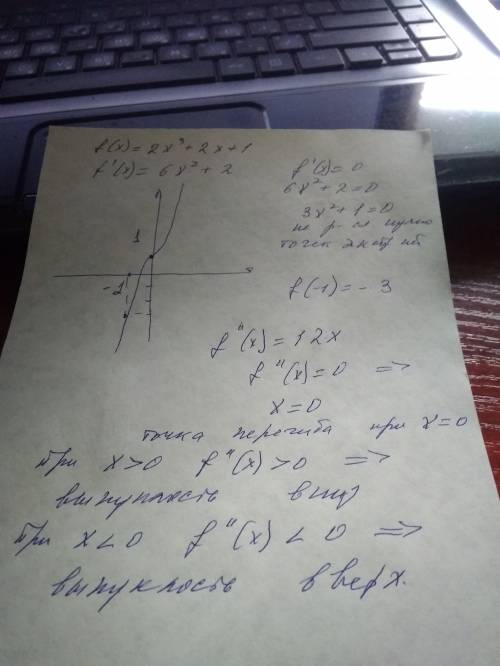 f(x) = 2x³ + 2x + 1
f'(x) = 6x² + 2
f'(x) = 0
6x² + 2 = 0
3x² + 1 = 0
не р-ся
точек экстр нет
1
-1
f(-1) = -3
f''(x) = 12x
f''(x) = 0 =>
x = 0
точка перегиба при x = 0
при x > 0 f''(x) > 0 =>
выпуклость вниз
при x < 0 f''(x) < 0 =>
выпуклость вверх.